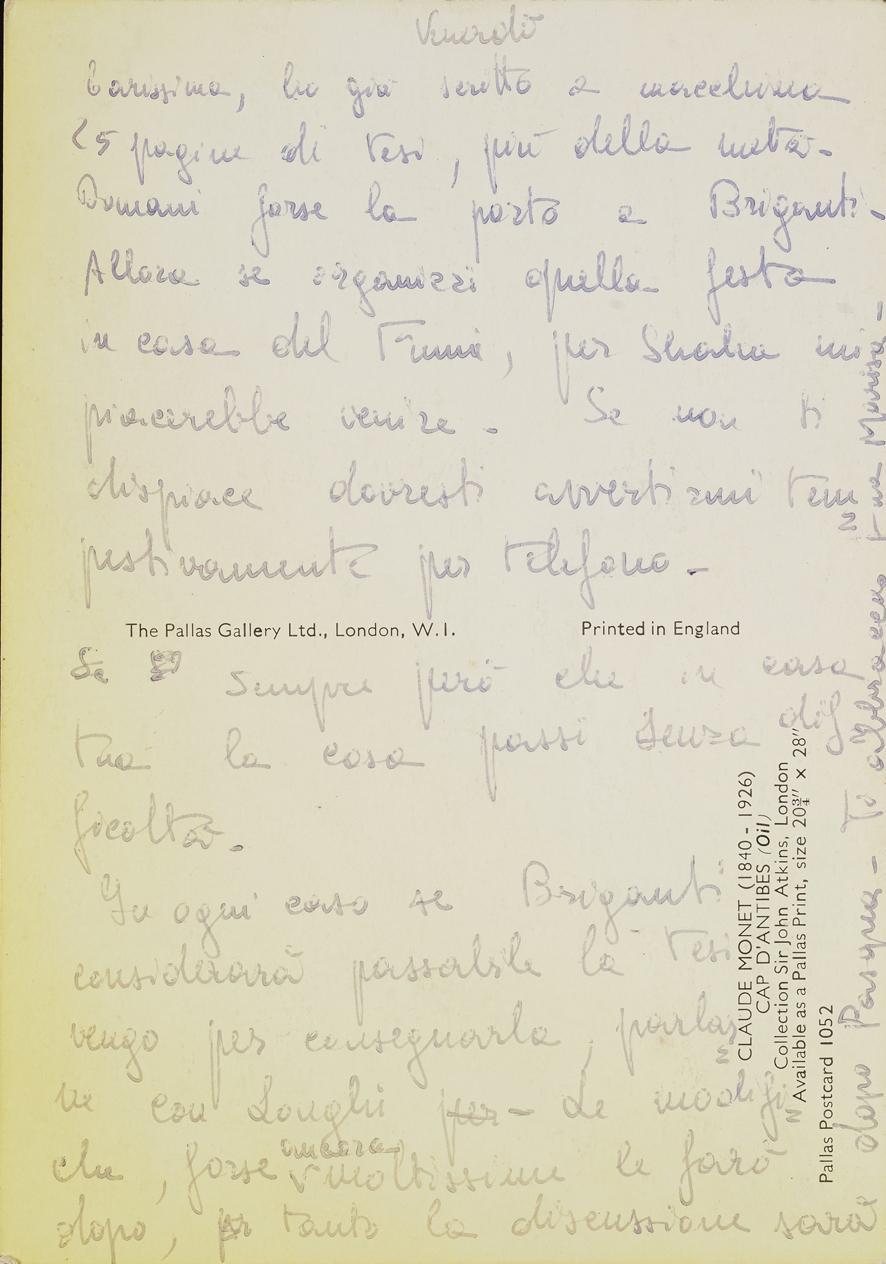 Venerdì
Carissima, ho già scritto a macchina
25 pagine di tesi, più della metà -
Domani forse la porto a Briganti -
Allora se organizzi quella festa
in casa del, per mi
piacerebbe venire - Se non ti
dispiace dovresti avvertirmi tem
pestivamente per telefono -
The Pallas Gallery Ltd., London, W.I. Printed in England
Se sempre però che in casa
tua la cosa passi senza dif
ficoltà -
In ogni caso se Briganti
considerarà passabile la tesi
vengo per consegnarla, parlar
ne con Longhi per - Le modifi
che, forse ancora moltissime le farò
dopo, tanto la discussione sarà
dopo Pasqua - Ti abbraccio tua Marisa -
CLAUDE MONET (1840 - 1926)
CAP D'ANTIBES (Oil)
Collection Sir John Atkins, London
Available as a Pallas Print, size 20¾" × 28"
Pallas Postcard 1052